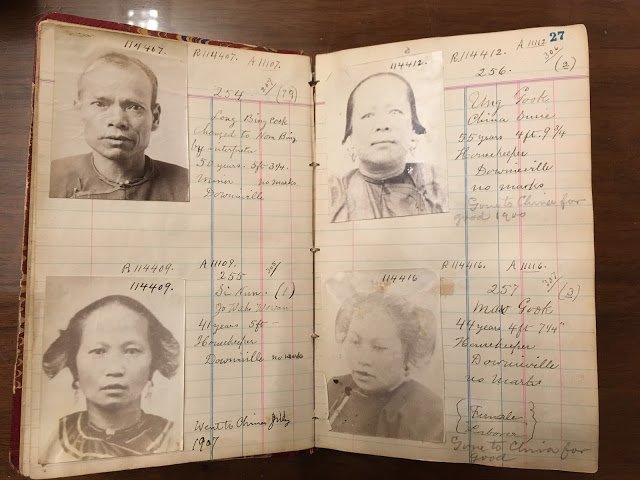 114407.
R 114407. A 11107.
254 (79)
Long Bing Cook
changed to Hom Bing
by interpreter
50 years. 5ft 3¾.
Miner no marks
Downieville
R 114409. A 11109.
114409.
255
(1)
41 years 5ft –
Housekeeper
Downieville no marks
Went to China July
1907
27
114412.
R 114412. A 11112
256. (2)
Ung Gook
China
55 years 4ft. 9¾
Housekeeper
Downieville
no marks
Gone to China for
good 1900
114416
R 114416. A 11116.
257 (3)
Maw Gook
44 years 4ft 7¼"
Housekeeper
Downieville
no marks
{Female
Laborer}
Gone to China for
good